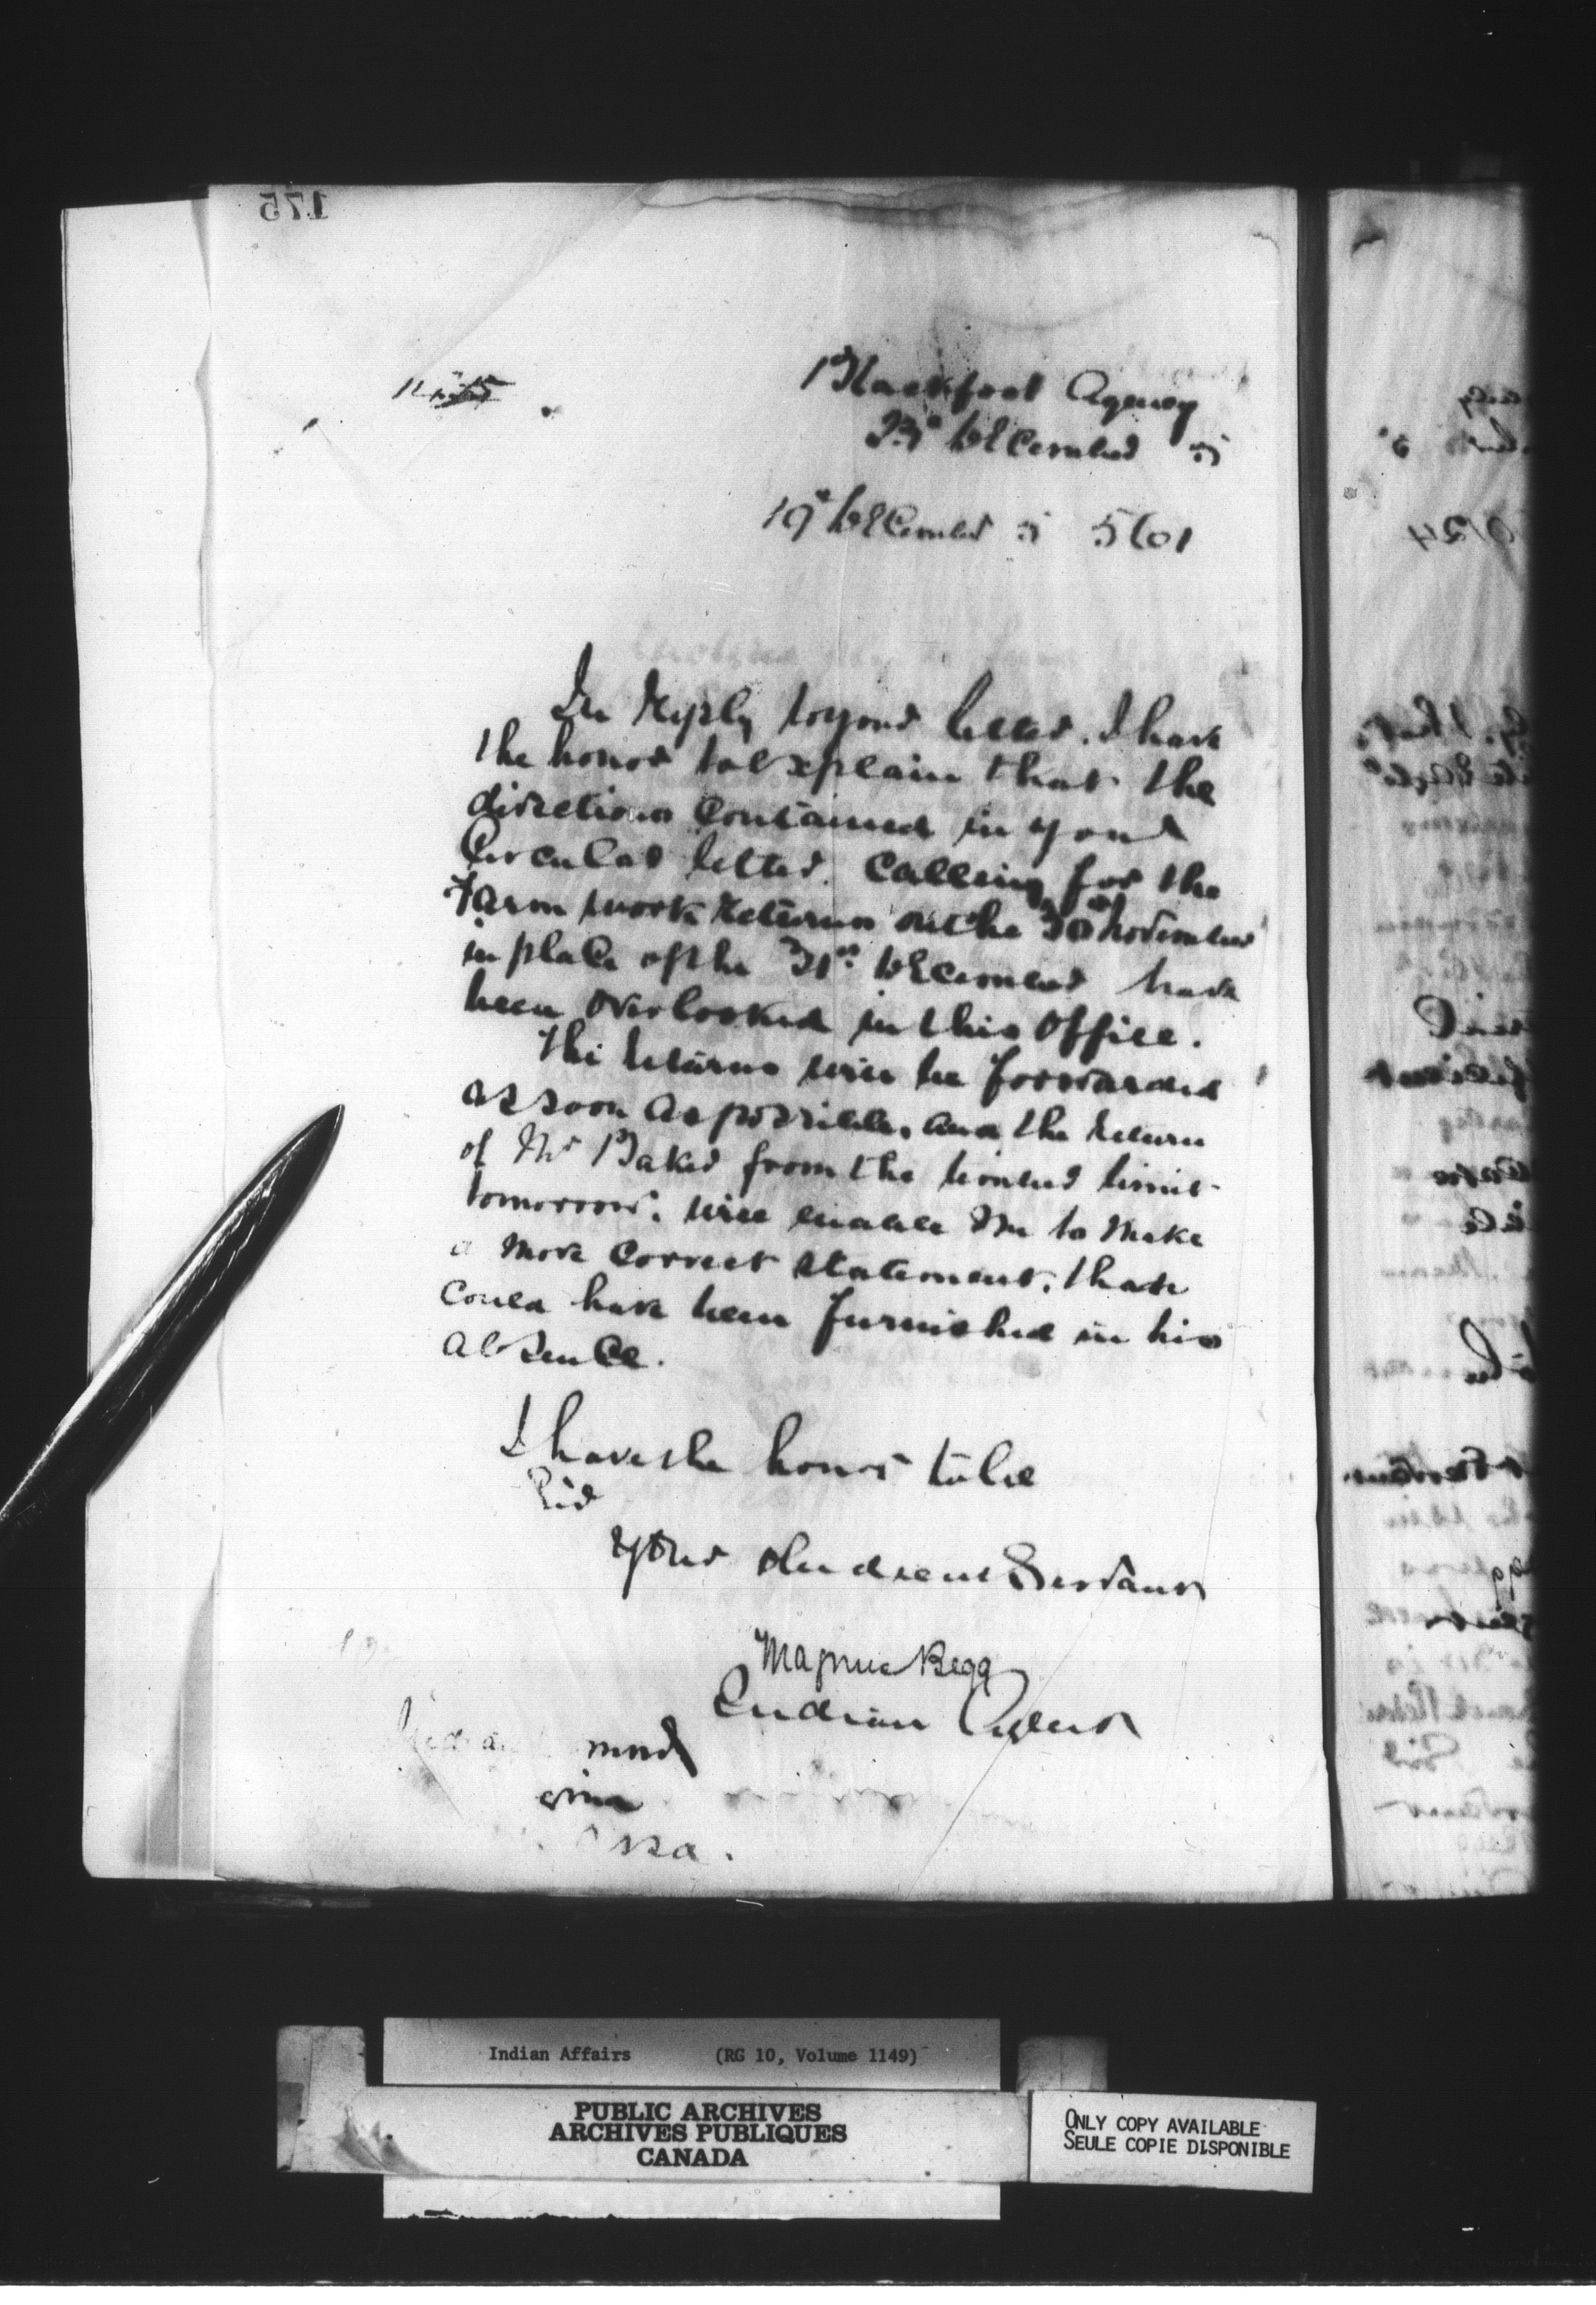 175
Blackfoot Agency
23d December 5
19th December 5 5601
In Reply to your letter. I have
the honor to Explain that the
directions Contained in your
Circular letter. Calling for the
Farm work Returns on the 30th November
in place of the 31st December have
been Overlooked in this Office.
The Returns will be forwarded
as soon as possible, and the Return
of Mr Baker from the timber limit
tomorrow: will enable Me to Make
a More Correct Statement, than
Could have been furnished in his
absence.
I have the honor to be
Sir
Your Obedient Servant
Magnus Begg
Indian Agent
Indian
Indian Affairs (RG 10, Volume 1149)
PUBLIC ARCHIVES
ARCHIVES PUBLIQUES
CANADA
ONLY COPY AVAILABLE
SEULE COPIE DISPONIBLE